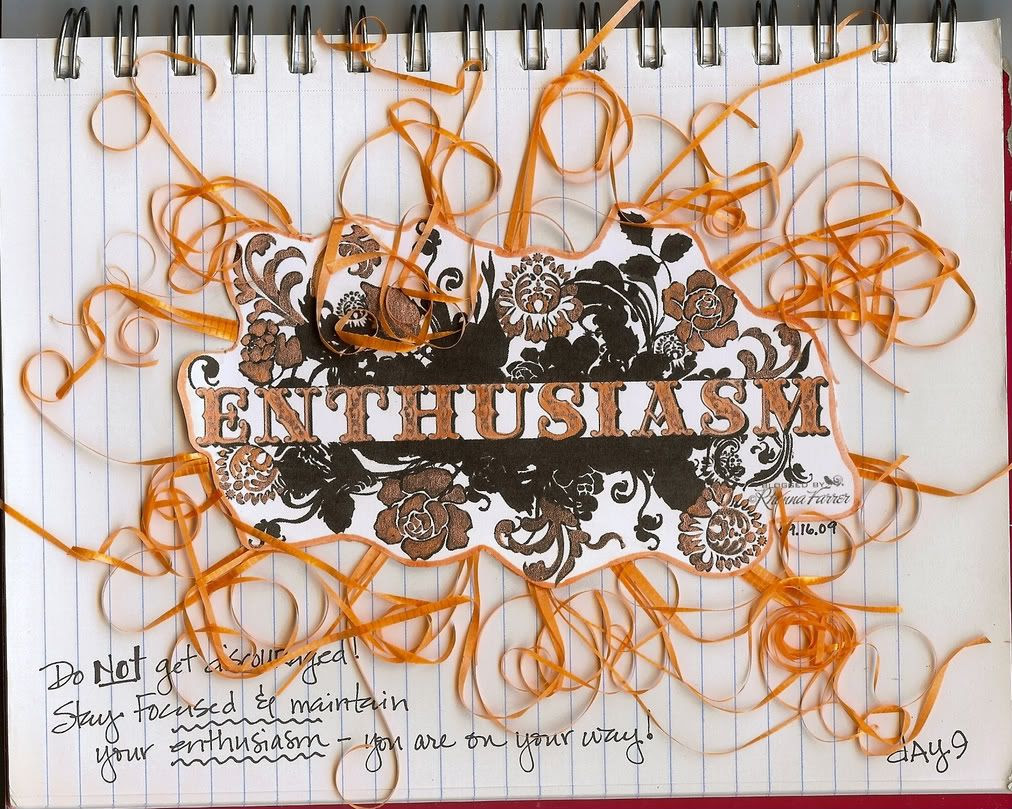 ENTHUSIASM
BLOGGED BY
© Rhonna Farrer
9.16.09
Do NOT get discouraged!
Stay Focused & maintain
your enthusiasm - you are on your way!
dAY 9